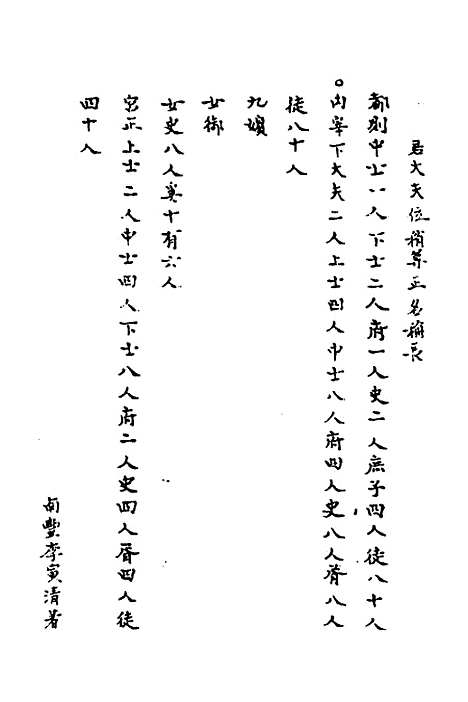 若大夫位稍尊正名稱長
都則中士一人下士二人府一人史二人庶子四人徒八十人
○內宰下大夫二人上士四人中士八人府四人史八人胥八人
徒八十人
九嬪
女御
女史八人奚十有六人
宮正上士二人中士四人下士八人府二人史四人胥四人徒
四十人
南豐李寅清著